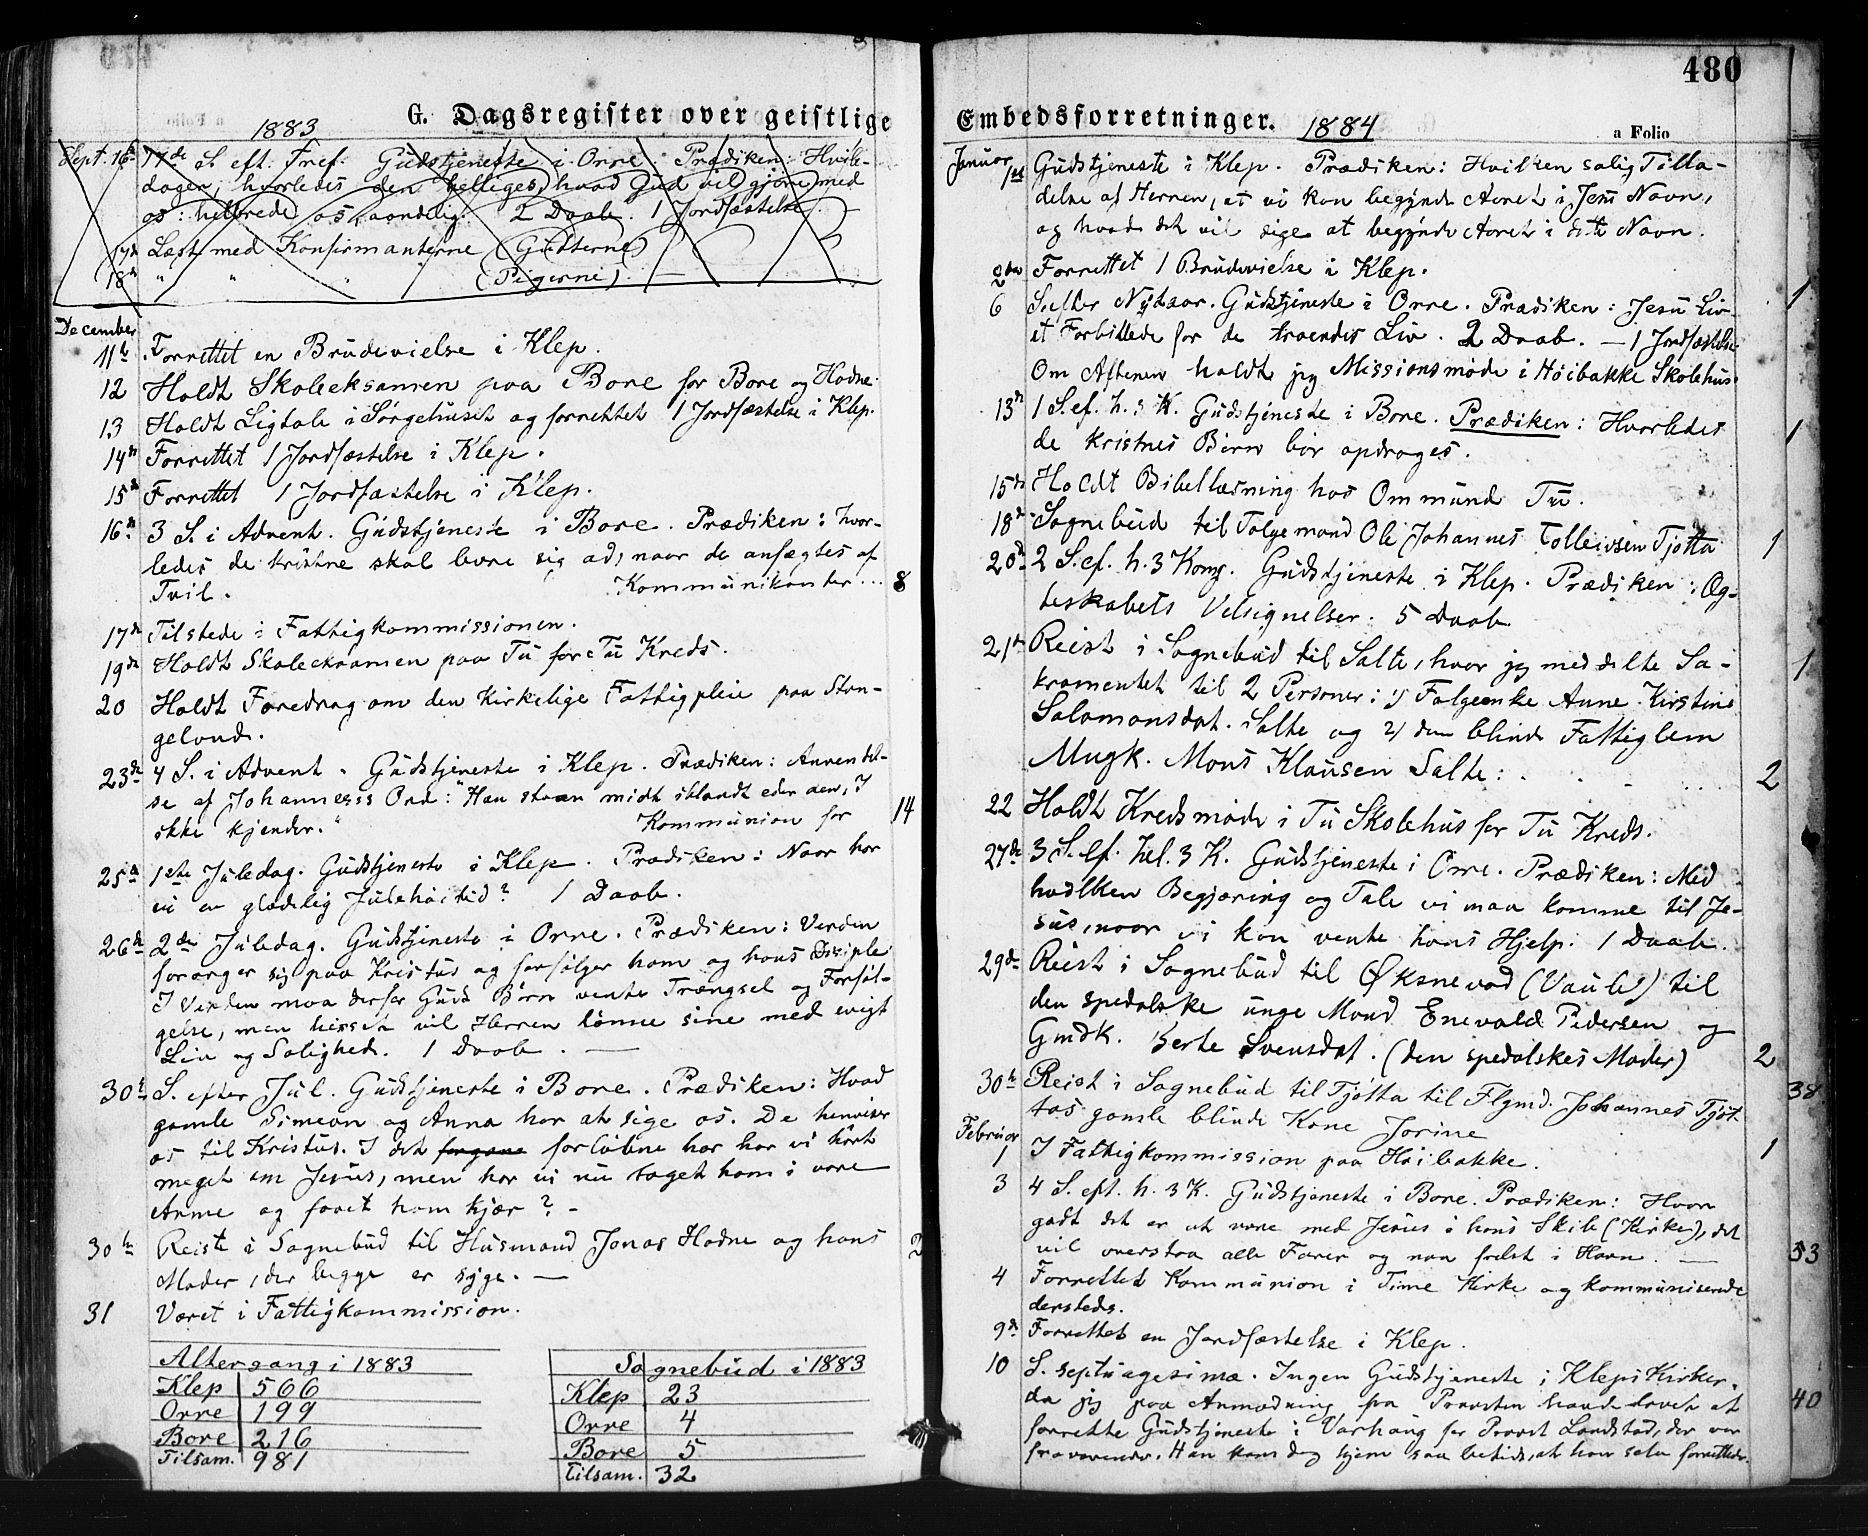 G. Dagsregister over geistlige
1883
Sept. 16de 17de S. eft. Tref. Gudstjeneste i Orre. Prædiken: Hvile-
dagen, hvorledes den helliges, hvad Gud vil gjøre med
os: helbrede os aandelig. 2 Daab. 1 Jordfæstelse.
17de Læst med Konfirmanterne (Gutterne)
18de " " " (Pigerne).
December
11te Forrettet en Brudevielse i Klep.
12 Holdt Skoleeksamen paa Bore for Bore og Hodne.
13 Holdt Ligtale i Sørgehuset og forrettet 1 Jordfæstelse i Klep.
14de Forrettet 1 Jordfæstelse i Klep.
15de Forrettet 1 Jordfæstelse i Klep.
16de 3 S. i Advent. Gudstjeneste i Bore. Prædiken: hvor-
ledes de kristne skal bære sig ad, naar de anfægtes af
Tvil. Kommunikanter... 8
17de Tilstede i Fattigkommissionen.
19de Holdt Skoleeksamen paa Tu for Tu Kreds.
20 Holdt Foredrag om den kirkelige Fattigpleie paa Stan-
geland.
23de 4 S. i Advent. Gudstjeneste i Klep. Prædiken: Anvendel-
se af Johanness Ord: "Han staar midt iblandt eder den, I
ikke kjender." Kommunion for 14
25de 1ste Juledag. Gudstjeneste i Klep. Prædiken: Naar har
vi en glædelig Julehøitid? 1 Daab.
26de 2den Juledag. Gudstjeneste i Orre. Prædiken: Verden
forarger sig paa Kristus og forfølger ham og hans Disciple
I Verden maa derfor Guds Børn vente Trængsel og Forføl-
gelse, men hisset vil Herren lønne sine med evigt
Liv og Salighed. 1 Daab. —
30te S. efter Jul. Gudstjeneste i Bore. Prædiken: Hvad
gamle Simeon og Anna har at sige os. De henviser
os til Kristus. I det forløbne har har vi hørt
meget om Jesus, men har vi nu taget ham i vore
Arme og faaet ham kjær? -
30te Reiste i Sognebud til Husmand Jonas Hodne og hans 2
Moder, der begge er syge. —
31 Været i Fattigkommission.
Altergang i 1883
Klep 566
Orre 199
Bore 216
Tilsam. 981
Sognebud i 1883
Klep 23
Orre 4
Bore 5
Tilsam. 32
480
Embedsforretninger. 1884
a Folio
Januar 1ste Gudstjeneste i Klep. Prædiken: Hvilken salig Tilla-
delse af Herren, at vi kan begynde Aaret i Jesu Navn,
og hvad det vil sige at begynde Aaret i dette Navn.
2den Forrettet 1 Brudevielse i Klep.
6 S. efter Nytaar. Gudstjeneste i Orre. Prædiken: Jesu Liv 1
et Forbillede for de troendes Liv. 2 Daab. — 1 Jordfæstelse
Om Aftenen holdt jeg Missionsmøde i Høibakke Skolehus.
13de 1 S. ef. h. 3 K. Gudstjeneste i Bore. Prædiken: Hvorledes 1
de kristnes Børn bør opdrages.
15de Holdt Bibellæsning hos Ommund Tu.
18de Sognebud til Folgemand Ole Johannes Tolleivsen Tjøtta 1
20de 2 S. ef. h. 3 Kong. Gudstjeneste i Klep. Prædiken: Æg-
teskabets Velsignelser. 5 Daab.
21de Reist i Sognebud til Salte, hvor jeg meddelte Sa- 1
kramentet til 2 Personer: 1) Folgeenke Anne Kirstine
Salamonsdat. Salte og 2) den blinde Fattiglem
Mugk. Mons Klausen Salte: 2
22 Holdt Kredsmøde i Tu Skolehus for Tu Kreds.
27de 3 S. ef. hel. 3 K. Gudstjeneste i Orre. Prædiken: Med
hvilken Begjæring og Tale vi maa komme til Je-
sus, naar vi kan vente hans Hjelp. 1 Daab.
29de Reist i Sognebud til Øksnevad (Vaule) til
den spedalske unge Mand Enevald Pedersen og
Gmdk. Berte Svensdat. (den spedalskes Moder) 2
30te Reist i Sognebud til Tjøtta til Flgmd. Johannes Tjøt- 38
tas gamle blinde Kone Jorine
Februar
1 I Fattigkommission paa Høibakke. 1
3 4 S. eft. h. 3 K. Gudstjeneste i Bore. Prædiken: Hvor
godt det er at være med Jesus i hans Skib (Kirke), det
vil overstaa alle Farer og naa frelst i Havn. — 53
4 Forrettet Kommunion i Time Kirke og kommuniserede
dersteds.
9de Forrettet en Jordfæstelse i Klep.
10 S. septuagesima. Ingen Gudstjeneste i Kleps Kirker,
da jeg paa Anmodning fra Provsten havde lovet at 40
forrette Gudstjeneste i Varhaug for Provst Landstad, der var
fraværende. Han kom dog hjem saa betids, at han selv forrettede.